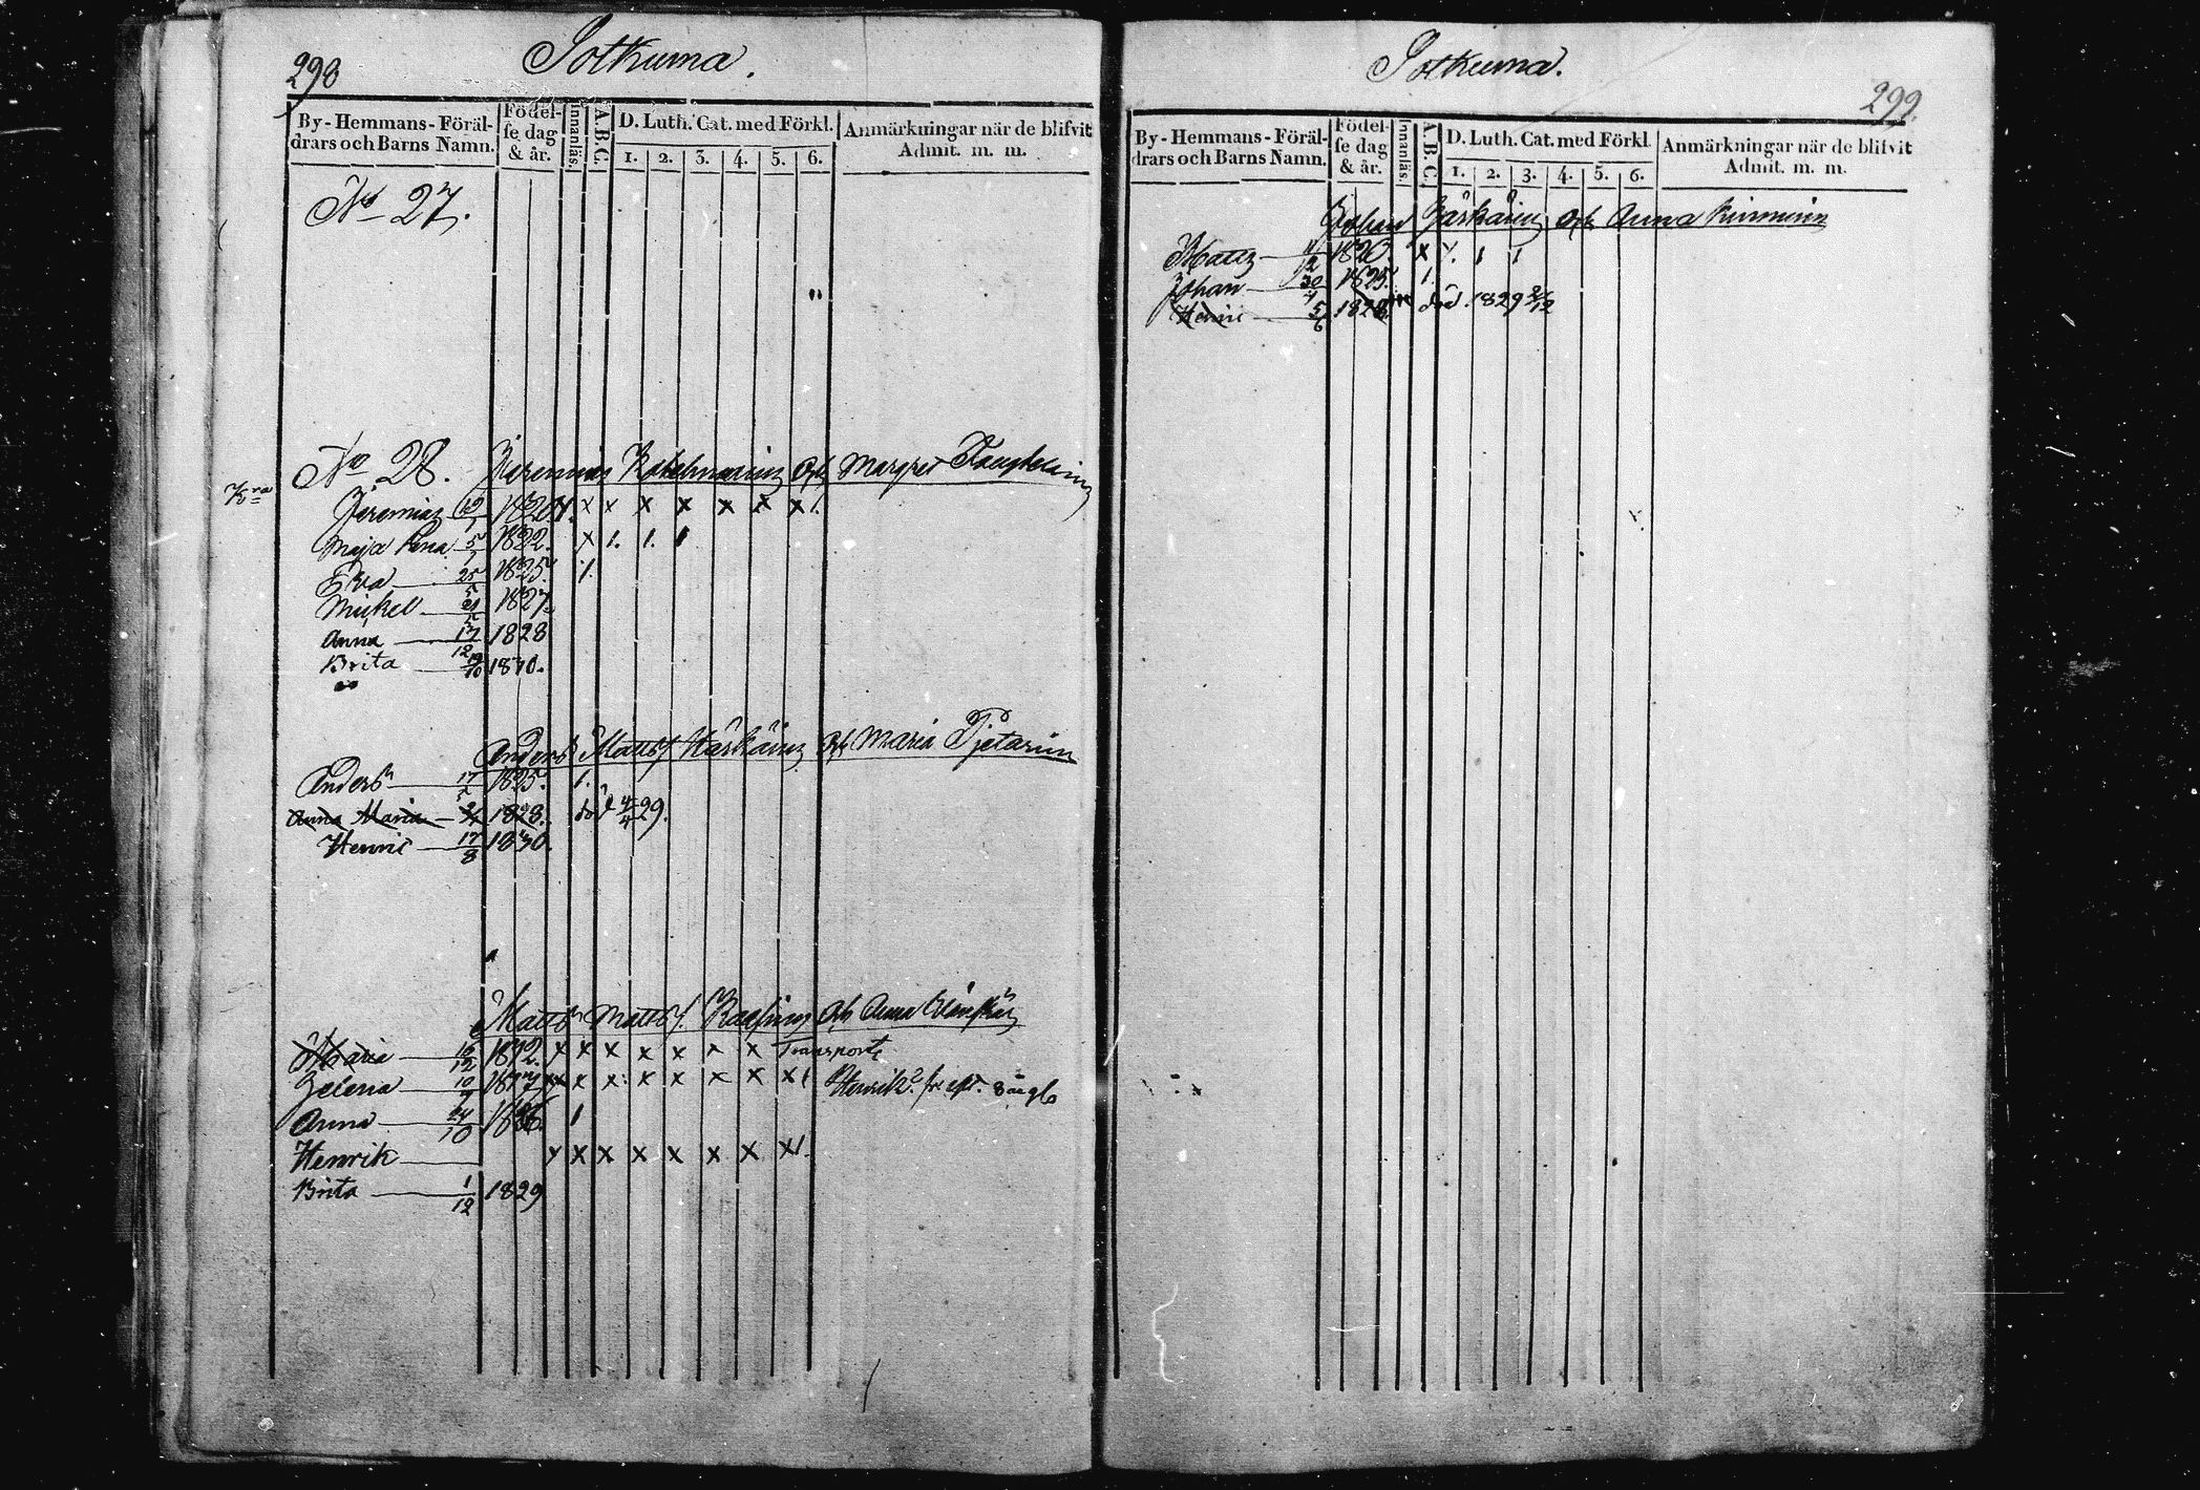 298
Sotkuma.
By-Hemmans-Föräl-
drars och Barns Namn.
Födel-
se dag
& år.
Innanläs.
A.B.C.
D. Luth. Cat. med Förkl.
1. 2. 3. 4. 5. 6.
Anmärkningar när de blifvit
Admit. m. m.
No 27.
No 28. Jeremias Och Margret
Jeremias 1820 x x x x x x x
Maja Lena 5 1822. x 1. 1. 1
Eva 25 1825. 1.
Mickel 21 1827.
Anna 17/12 1828
Brita 19/10 1830.
Anders Matts. Och Maria Pjetarin
Anders 17 1825. 1.
Anna Maria 1828. död 4/4 29.
Henric 17/8 1830.
Matts Matts. Och Anna
Maria 12 x x x x x x x Transporte
Helena 10 x x x x x x x x Henrik
Anna 24/10 1826. 1
Henrik x x x x x x x x
Brita 1/12 1829
Sotkuma.
299.
By-Hemmans-Föräl-
drars och Barns Namn.
Födel-
se dag
& år.
Innanläs.
A.B.C.
D. Luth. Cat. med Förkl.
1. 2. 3. 4. 5. 6.
Anmärkningar när de blifvit
Admit. m. m.
Johan Och Anna
Matts 1820. x 1 1
Johan 30 1825. 1.
Henric 5/6 1828. död. 1829